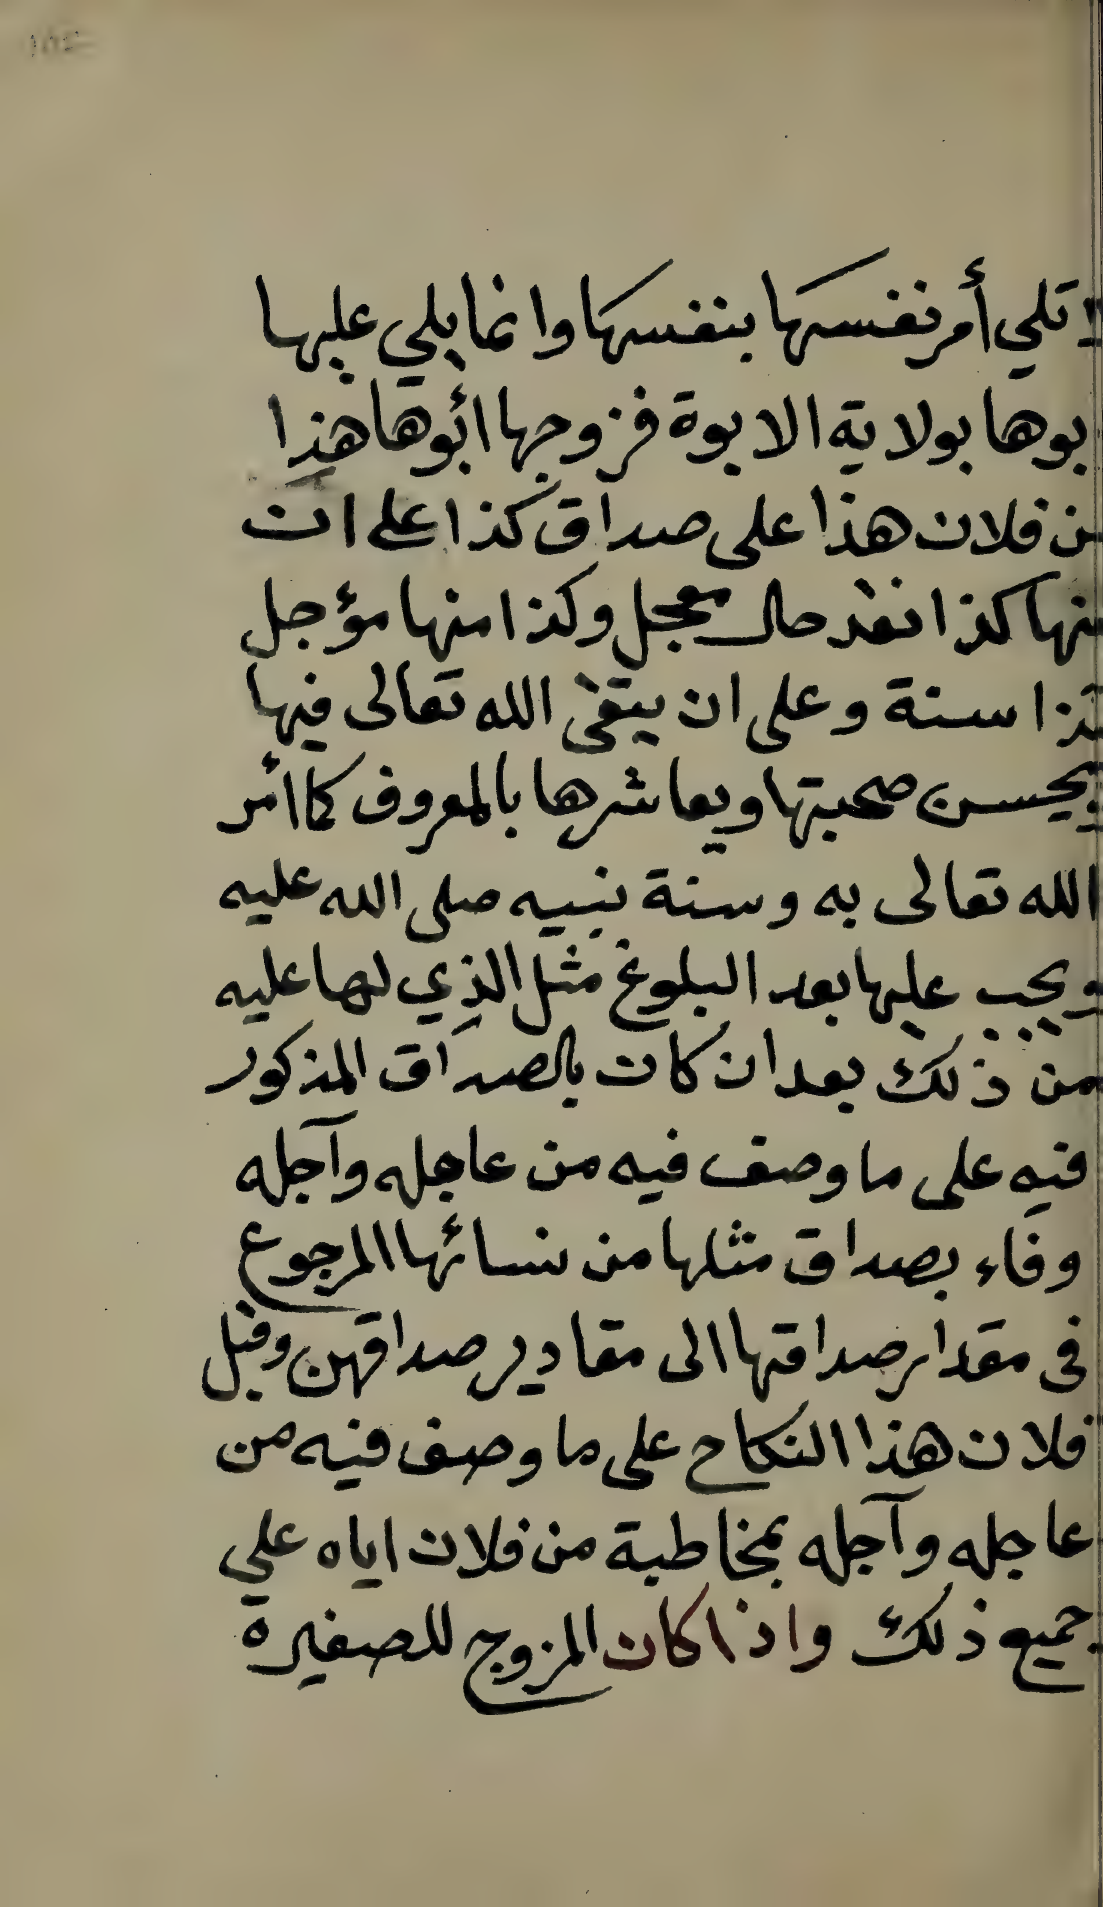 لا تلي أمر نفسها بنفسها وانما يلي عليها
بوها بولاية الابوة فزوجها أبوها هذا
من فلان هذا على صداق كذا على ان
منها كذا نقد حال معجل وكذا منها مؤجل
كذا سنة وعلى ان يتقي الله تعالى فيها
ويحسن صحبتها ويعاشرها بالمعروف كما أمر
الله تعالى به وسنة نبيه صلى الله عليه
ويجب عليها بعد البلوغ مثل الذي لها عليه
من ذلك بعد ان كان بالصداق المذكور
فيه على ما وصف فيه من عاجله وآجله
وفاء بصداق مثلها من نسائها المرجوع
في مقدار صداقها الى مقادير صداقهن وقبل
فلان هذا النكاح على ما وصف فيه من
عاجله وآجله بمخاطبة من فلان اياه علي
جميع ذلك واذا كان المزوج للصغيرة